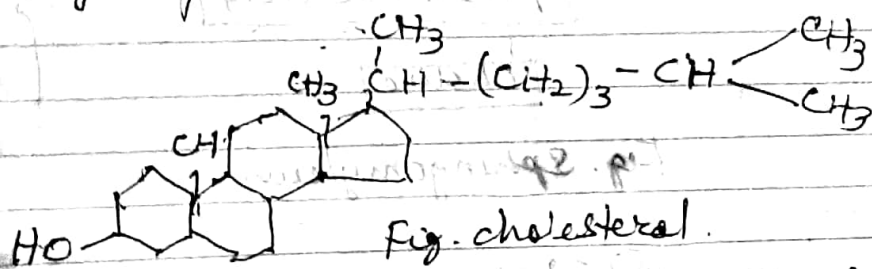 CH3
CH3 CH - (CH2)3 - CH CH3
CH3
CH
HO
Fig. cholesterol.